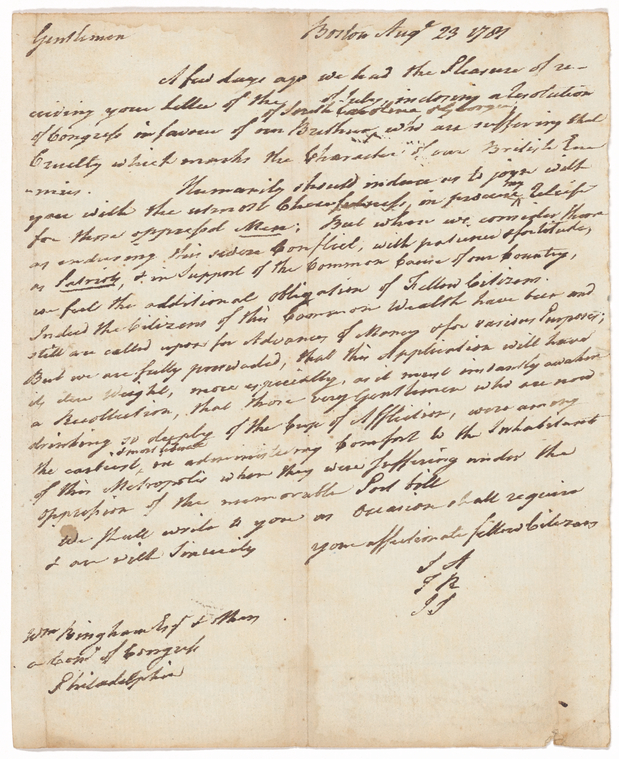 Gentlemen Boston Augt 23 1781
A few days ago we had the Pleasure of re-
ceiving your Letter of the of July, inclosing a Resolution
of South Carolina & Georgia
of Congress in favour of our Brethren, who are suffering that
Cruelty which marks the Character of our British Ene
-mies. Humanity should induce us to joyn with
you with the utmost Chearfulness, in procuring Relieff
for those oppressed Men; But when we consider them
as enduring this severe Conflict, with patience & fortitude,
as Patriots, & in Support of the Common Cause of our Country,
we feel the additional obligation of Fellow Citizens.
Indeed the Citizens of this Common Wealth have been and
still are called upon for Advances of Money & for various Purposes;
But we are fully perswaded, that this Application will have
its due Weight, more especially, as it must instantly awaken
a Recollection, that those very Gentlemen who are now
drinking so deeply of the Cup of Affliction, were among
the earliest, in administering Comfort to the Inhabitants
of this Metropolis when they were suffering under the
oppression of the memorable Port bill
We shall write to you as Occasion shall require
& are with Sincerity your affectionate fellow Citizens
S A
J S
Wm Bingham Esqr & others
a Comee of Congress
Philadelphia